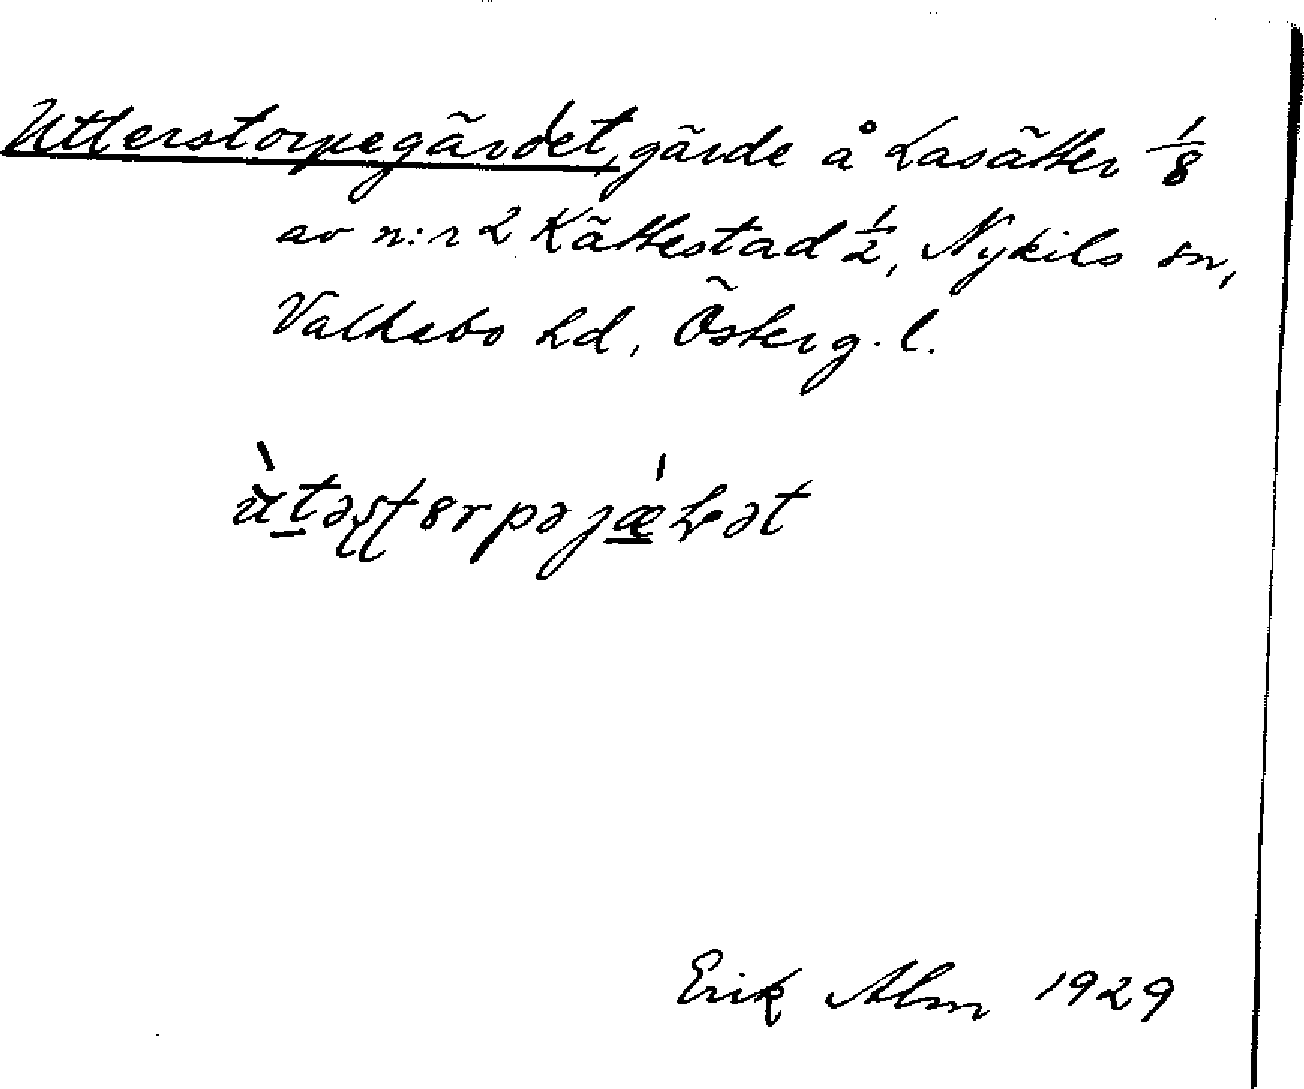 Utterstorpegärdet, gärde å Lasätter 1/8
av n:r 2 Kättestad 1/2, Nykils sn,
Valkebo hd, Österg. l.
Erik Alm 1929